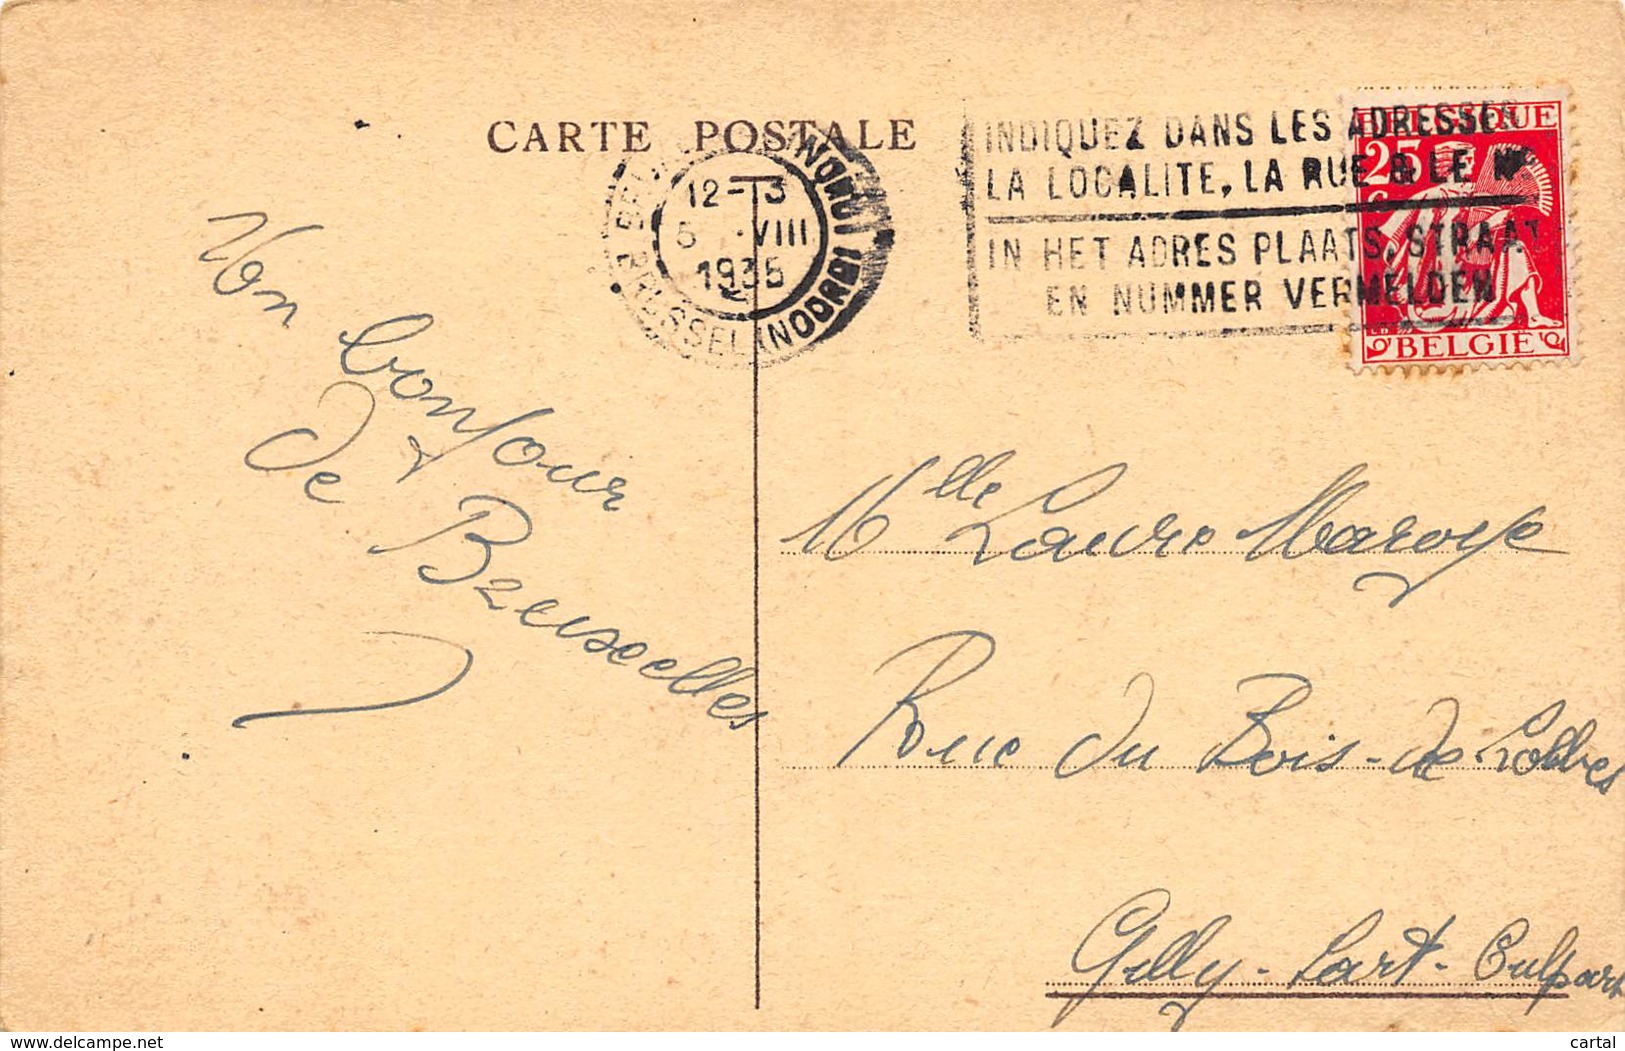 CARTE POSTALE
INDIQUEZ DANS LES ADRESSES
LA LOCALITE, LA RUE & LE N°
IN HET ADRES PLAATS, STRAAT
EN NUMMER VERMELDEN
12-13
5 VIII
1935
BRUSSEL (NOORD)
BELGIQUE
25
BELGIË
Un bonjour
de Bruxelles
Mlle Laure Maroye
Rue du Bois-de-Lobbes
Gilly-Sart-Culpart
delcampe.net
cartal